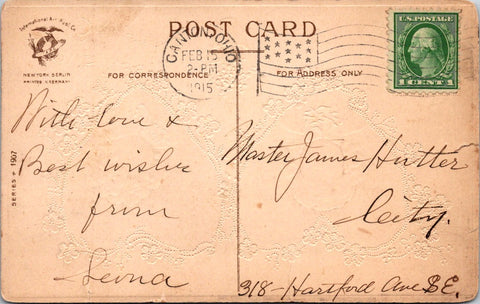 International Art Publ. Co.
NEW YORK BERLIN
PRINTED IN GERMANY
POST CARD
CANTON, OHIO
FEB 15
2-PM
1915
U.S. POSTAGE
1 CENTS 1
FOR CORRESPONDENCE
FOR ADDRESS ONLY
SERIES 1907
With love &
Best wishes
from
Leona
Master James Hutter
City.
318-Hartford Ave S.E.